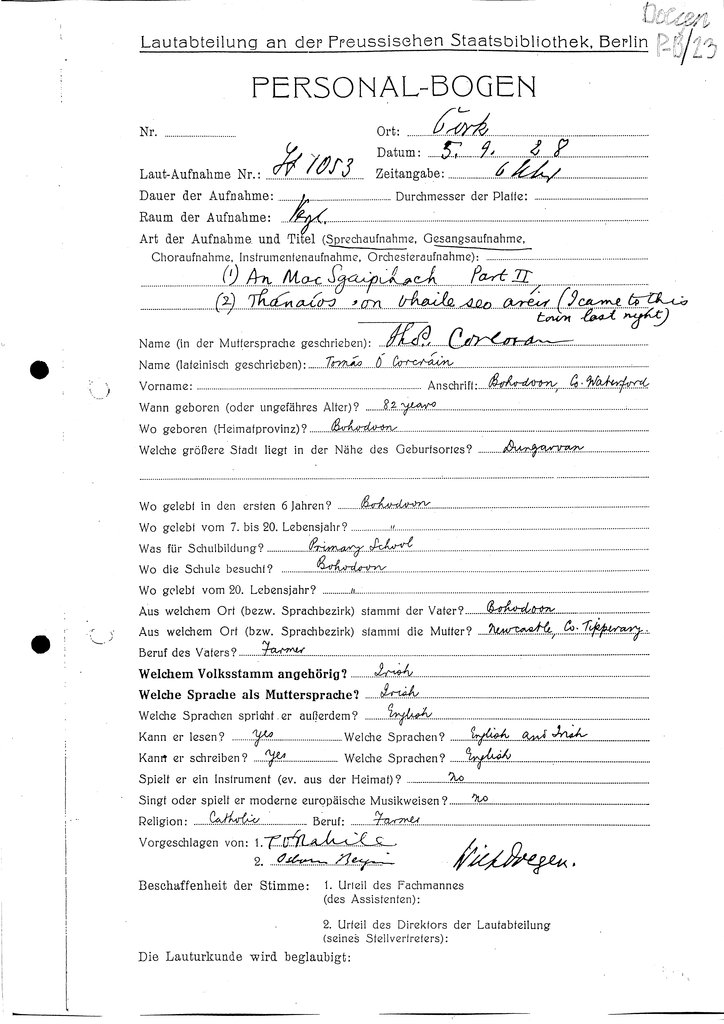 Doegen
Lautabteilung an der Preussischen Staatsbibliothek, Berlin
PERSONAL-BOGEN
Nr. Ort: Cork
Datum: 5. 9. 28
Laut-Aufnahme Nr.: 1053 Zeitangabe: 6 Uhr
Dauer der Aufnahme: Durchmesser der Platte:
Raum der Aufnahme:
Art der Aufnahme und Titel (Sprechaufnahme, Gesangsaufnahme,
Choraufnahme, Instrumentenaufnahme, Orchesteraufnahme):
(1) An Mac Sgaipthach Part II
(2) Thánaíos 'on bhaile seo aréir (I came to this
town last night)
Name (in der Muttersprache geschrieben): Thos. Corcoran
Name (lateinisch geschrieben): Tomás Ó Corcráin
Vorname: Anschrift: Bohodoon, Co. Waterford
Wann geboren (oder ungefähres Alter)? 82 years
Wo geboren (Heimatprovinz)? Bohodoon
Welche größere Stadt liegt in der Nähe des Geburtsortes? Dungarvan
Wo gelebt in den ersten 6 Jahren? Bohodoon
Wo gelebt vom 7. bis 20. Lebensjahr? "
Was für Schulbildung? Primary School
Wo die Schule besucht? Bohodoon
Wo gelebt vom 20. Lebensjahr? "
Aus welchem Ort (bezw. Sprachbezirk) stammt der Vater? Bohodoon
Aus welchem Ort (bzw. Sprachbezirk) stammt die Mutter? Newcastle, Co. Tipperary.
Beruf des Vaters? Farmer
Welchem Volksstamm angehörig? Irish
Welche Sprache als Muttersprache? Irish
Welche Sprachen spricht er außerdem? English
Kann er lesen? yes Welche Sprachen? English and Irish
Kann er schreiben? yes Welche Sprachen? English
Spielt er ein Instrument (ev. aus der Heimat)? no
Singt oder spielt er moderne europäische Musikweisen? no
Religion: Catholic Beruf: Farmer
Vorgeschlagen von: 1.
2. Doegen.
Beschaffenheit der Stimme: 1. Urteil des Fachmannes
(des Assistenten):
2. Urteil des Direktors der Lautabteilung
(seines Stellvertreters):
Die Lauturkunde wird beglaubigt: